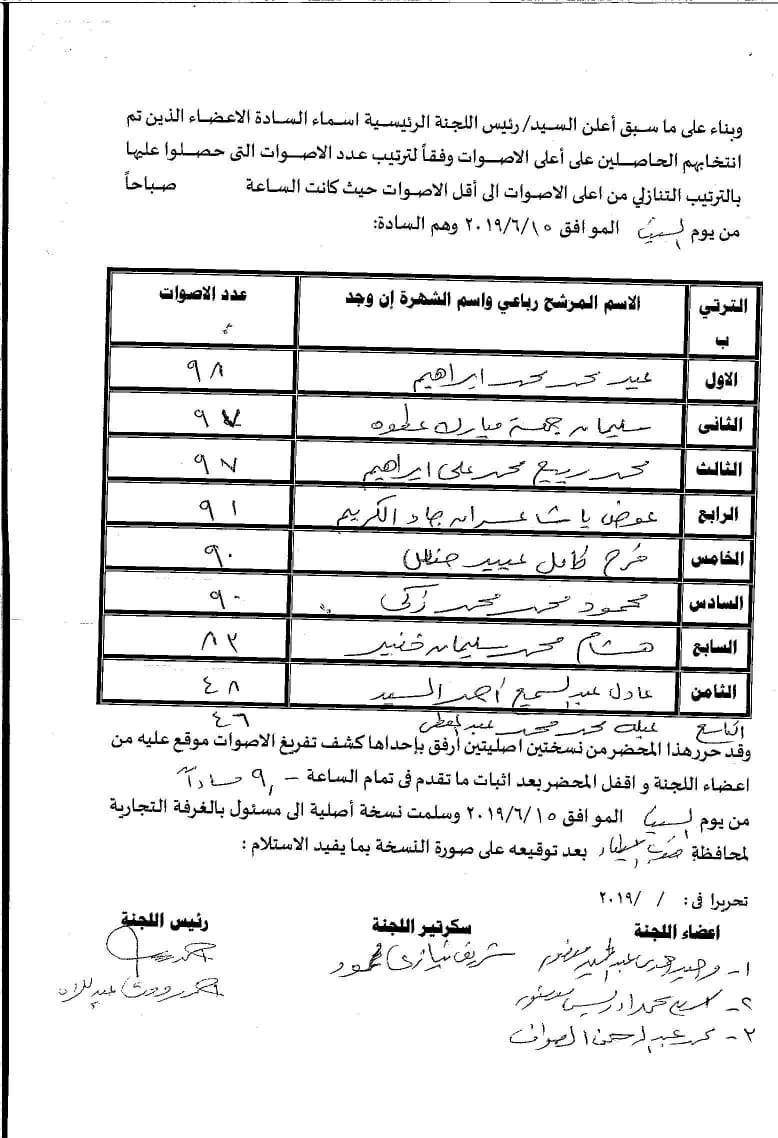 وبناء على ما سبق أعلن السيد/ رئيس اللجنة الرئيسية اسماء السادة الاعضاء الذين تم
انتخابهم الحاصلين على أعلى الاصوات وفقاً لترتيب عدد الاصوات التى حصلوا عليها
بالترتيب التنازلي من اعلى الاصوات الى أقل الاصوات حيث كانت الساعة صباحاً
من يوم السبت الموافق ٢٠١٩/٦/١٥ وهم السادة:
الترتيب الاسم المرشح رباعي واسم الشهرة إن وجد عدد الاصوات
الاول عيد محمد محمد ابراهيم ٩٨
الثانى سليمان جمعة مبارك عطوه ٩٧
الثالث محمد ربيع محمد على ابراهيم ٩٧
الرابع عوض باشا عمران جاد الكريم ٩١
الخامس فرح كامل عبيد حنظل ٩٠
السادس محمود محمد محمد زكى ٩٠
السابع هشام محمد سليمان ٨٣
الثامن عادل عبد السميع أحمد السيد ٤٨
التاسع محمد محمد عبد المعطى ٤٦
وقد حرر هذا المحضر من نسختين اصليتين أرفق بإحداها كشف تفريغ الاصوات موقع عليه من
اعضاء اللجنة و اقفل المحضر بعد اثبات ما تقدم فى تمام الساعة ٩ مساءً
من يوم السبت الموافق ٢٠١٩/٦/١٥ وسلمت نسخة أصلية الى مسئول بالغرفة التجارية
لمحافظة جنوب سيناء بعد توقيعه على صورة النسخة بما يفيد الاستلام :
تحريرا فى : / /٢٠١٩
اعضاء اللجنة سكرتير اللجنة رئيس اللجنة
١- وحيد حمدى عبد الحميد شريف نيازى محمود
٢- كريم محمد ادريس احمد رفعت عبد اللاه
٣- محمد عبد الرحمن الصواف